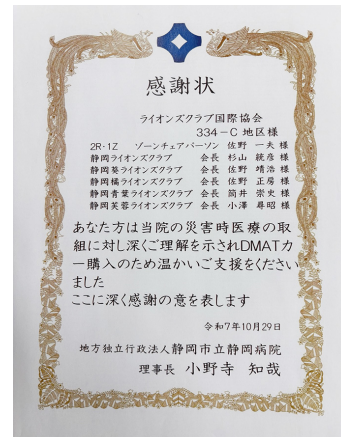 感謝状
ライオンズクラブ国際協会
334-C 地区様
2R・1Z ゾーンチェアパーソン 佐野 一夫 様
静岡ライオンズクラブ 会長 杉山 統彦 様
静岡葵ライオンズクラブ 会長 佐野 靖浩 様
静岡橘ライオンズクラブ 会長 佐野 正房 様
静岡青葉ライオンズクラブ 会長 筒井 崇史 様
静岡芙蓉ライオンズクラブ 会長 小澤 尋昭 様
あなた方は当院の災害時医療の取
組に対し深くご理解を示されDMATカ
ー購入のため温かいご支援をください
ました
ここに深く感謝の意を表します
令和7年10月29日
地方独立行政法人静岡市立静岡病院
理事長 小野寺 知哉